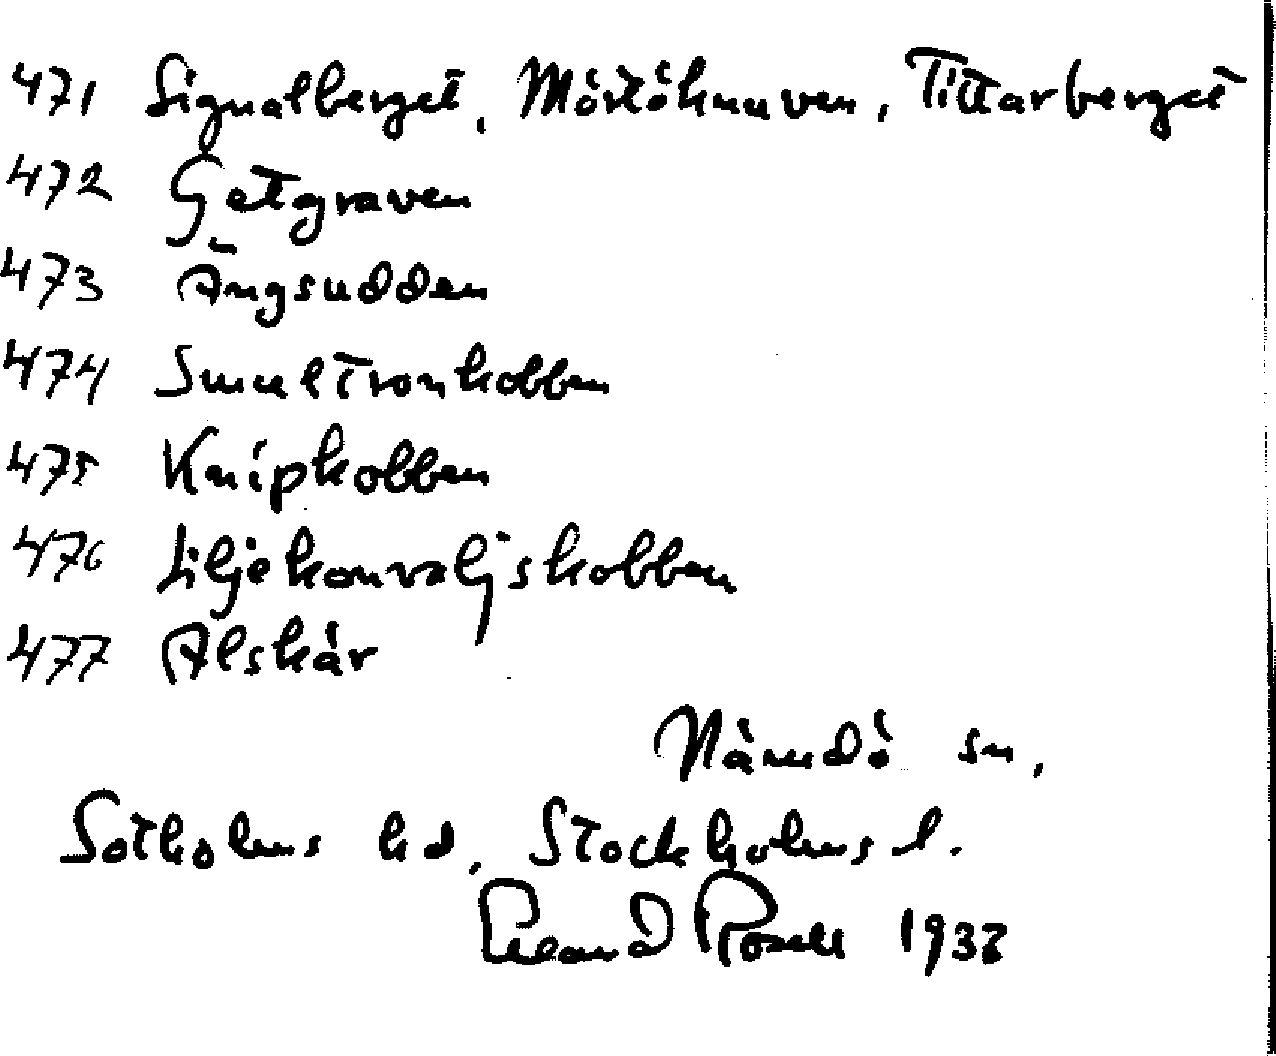 471 Signalberget, Mörtöknuven, Tittarberget
472 Getgraven
473 Ängsudden
474 Smultronkobben
475 Knipkobben
476 Liljekonvaljskobben
477 Alskär
Nämdö sn,
Sotholms hd, Stockholms l.
1937